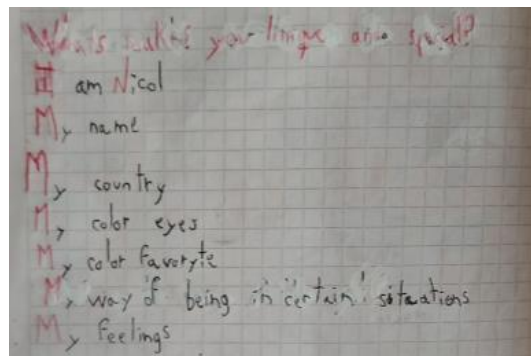 Whats makes you Unique and special?
I am Nicol
My name
My country
My color eyes
My color favoryte
My way of being in certain situations
My feelings